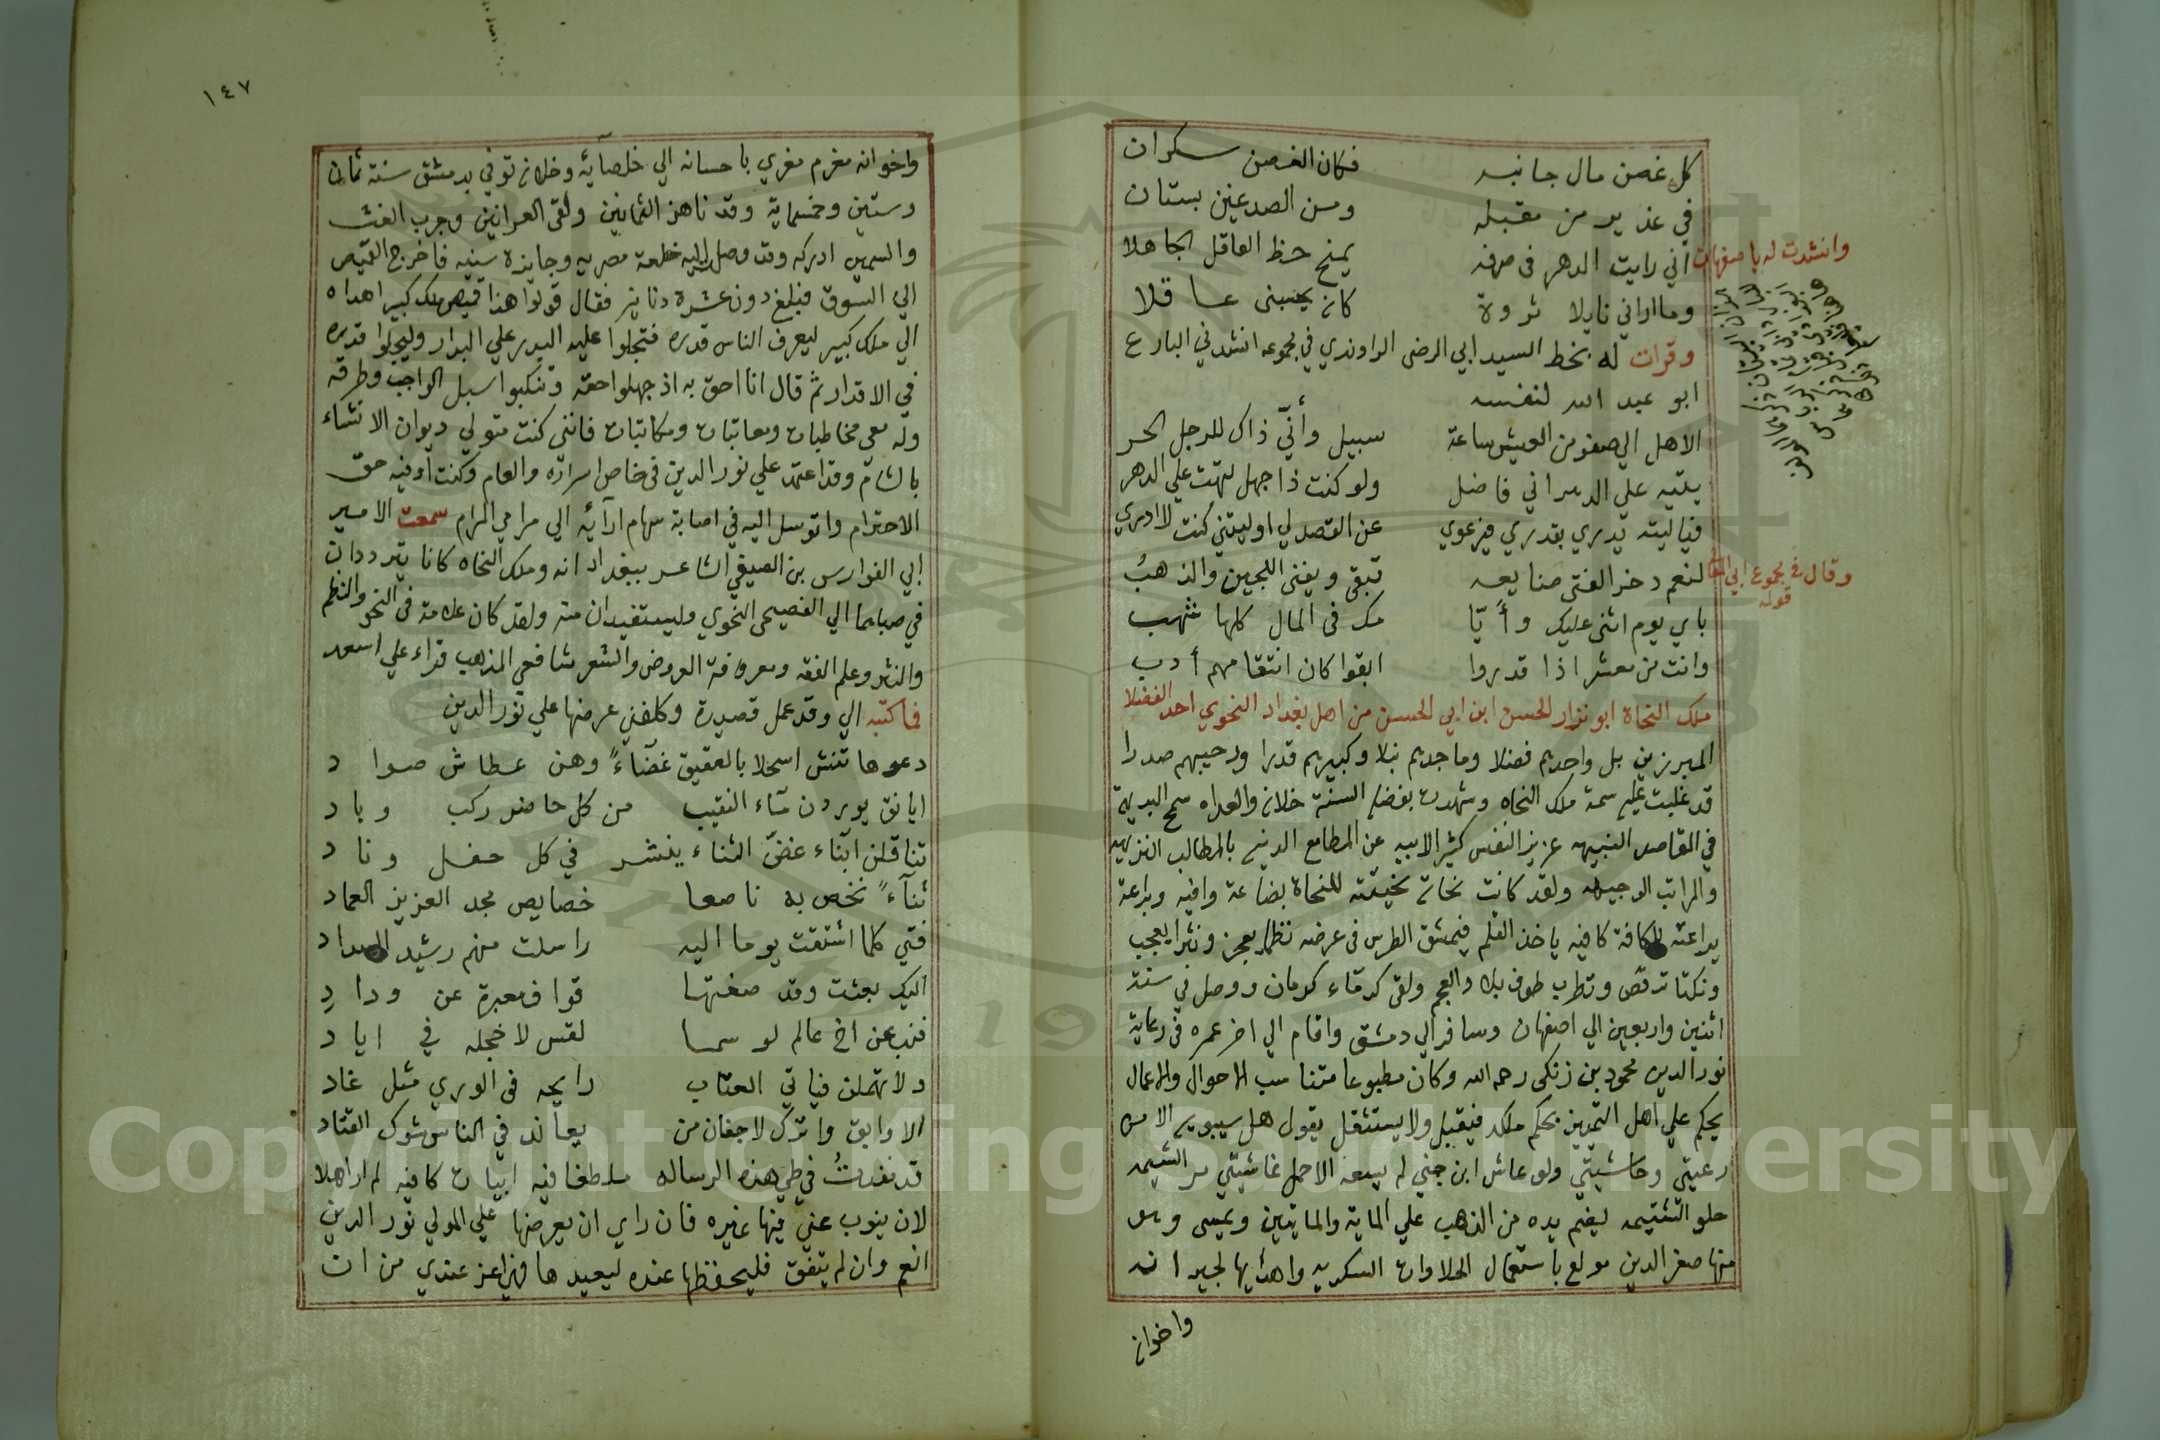 كل غصن مال جانبه فكان الغصن سكران
في غدير من مقبله ومن الصدغين بستان
وانشدت له باصفهان
اني رايت الدهر في صرفه يمنح حظ العاقل الجاهلا
وما اراني نايلا ثروة كانه يحسبني عاقلا
وقرات له بخط السيد ابي الرضى الراوندي في مجموعه انشدني البارع
ابو عبد الله لنفسه
الا هل الي صفو من العيش ساعة سبيل وأنّي ذاك للرجل الحر
يتيه علي الدهر اني فاضل ولو كنت ذا جهل لتهت علي الدهر
فيا ليته يدري بقدري فيرعوي عن القصد لي او ليتني كنت لا ادري
وقال في مجموع ابي
قوله
لنعم دخر الفتى صنايعه تبقى ويفنى اللجين والذهبُ
باي يوم اثني عليك وأيّا مك في المال كلها نهب
وانت من معشر اذا قدروا ابقوا كان انتقامهم أدب
ملك النحاة ابو نزار الحسن ابن ابي الحسن من اهل بغداد النحوي احد الفضلا
المبرزين بل واحدهم فضلا وماجدهم نبلا وكبيرهم قدرا ورحيبهم صدرا
قد غلبت عليه سمة ملك النحاه وشهدت بفضله السنة خلانه والعداه سمح البديهة
في المقاصد النبيهه عزيز النفس كثير الابيه عن المطامع الدنيه بالمطالب النزيهه
والمراتب الوجيهه ولقد كانت نحاته نخيتته للنحاة بضاعة وافيه وبراعة
يراعته للكافة كافيه ياخذ القلم فيمشق الطرس في عرضه نظما يعجز ونثرا يعجب
ونكتا ترقص وتطرب طوف بلاد العجم ولقى كرماء كرمان ووصل في سنة
اثنين واربعين الي اصفهان وسافر الي دمشق واقام الي اخر عمره في رعاية
نور الدين محمود بن زنكى رحمه الله وكان مطبوعا متناسب الاحوال والاعمال
يحكم علي اهل التميز بحكم ملكه فيقبل ولا يستثقل يقول هل سيبويه الا من
رعيتي وحاشيتي ولو عاش ابن جني لم يسعه الا حمل غاشيتي مر الشيمه
حلو الشتيمه يضم يده من الذهب علي الماية والمايتين ويمسى وهو
منها صفر الدين مولع باستعمال الحلاوات السكريه واهدايها لجيرانه
واخوانه
١٤٧
واخوانه مغرم مغري باحسانه الي خلصآيه وخلانه توفي بدمشق سنة ثمان
وستين وخمسماية وقد ناهز الثمانين ولقى العرانين وجرب الغث
والسمين ادركه وقد وصل اليه خلعة مصريه وجايزة سنيه فاخرج القميص
الي السوق فبلغ دون عشرة دنانير فقال قولوا هذا قميص ملك كبير اهداه
الي ملك كبير ليعرف الناس قدره فتجلوا عليه البدر علي البدار وليجلوا قدره
في الاقدار ثم قال انا احق به اذ جهلوا حقه وتنكبوا سبل الواجب وطرقه
وله معي مخاطبات ومعاتبات ومكاتبات فانني كنت متولي ديوان الانشاء
بالشام وقد اعتمد علي نور الدين في خاص اسراره والعام وكنت أوفيه حق
الاحترام واتوسل اليه في اصابة سهام ارآيه الي مرامي المرام سمعت الامير
ابي الفوارس بن الصيفي الشاعر ببغداد انه وملك النحاه كانا يترددان
في صباهما الي الفصيحي النحوي وليستفيدان منه ولقد كان علامة في النحو والنظم
والنثر وعلم الفقه ومعرفة العروض والشعر شافعي المذهب قراء علي اسعد
فما كتبه الي وقد عمل قصيدة وكلفني عرضها علي نور الدين
دعوها تنش اسحلا بالعقيق غضّاءً وهن عطاش صواد
ايانق يوردن مآء النقيب من كل حاضر ركب وباد
تناقلن ابناء غضّ الثناء ينشر في كل حفل وناد
ثنآءً نخص به ناصعا خصايص مجد العزيز العماد
فتي كلما اشتقت يوما اليه راسلت منهم رشيد السداد
اليك بعثت وقد صغتها قواف معبرة عن ودادِ
فنب عن اخ عالم لو سما لقس لاخجله في اياد
ولا تهملن فياتي العتاب رايحه في الوري مثل غاد
الاوابق واترك لاجفان من يعاند في الناس شوك القتاد
قد نفدتُ في طي هذه الرساله ملطفا فيه ابيات كافيه لم اراهلا
لان ينوب عني فيها غيره فان راي ان يعرضها علي المولي نور الدين
انعم وان لم يتفق فليحفظها عنده ليعيدها فهي اعز عندي من ان